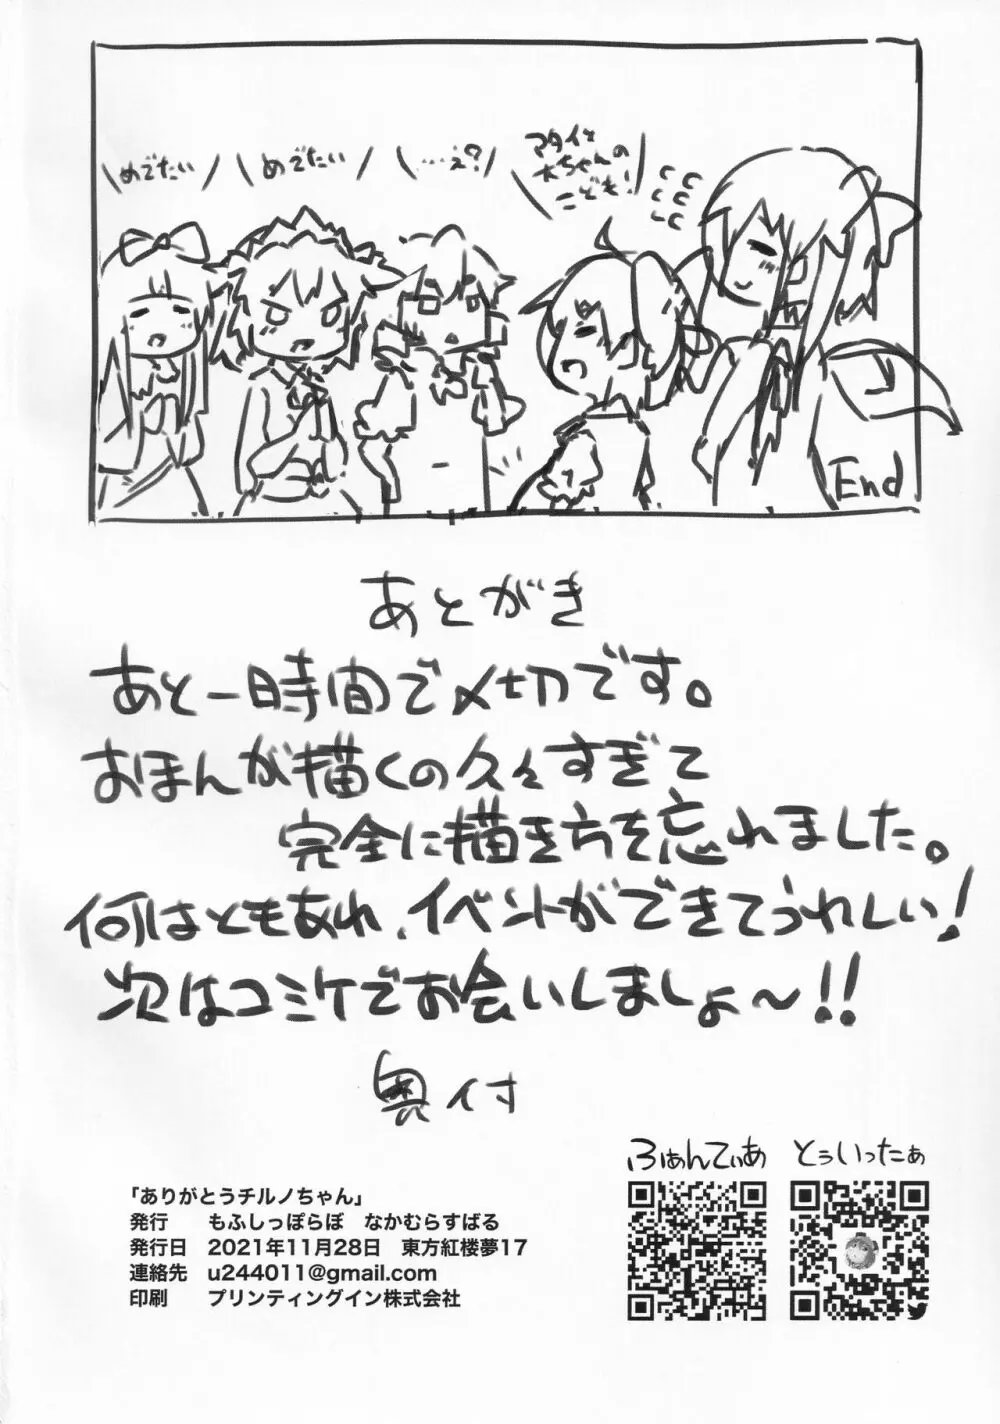 めでたい
めでたい
…え?
アタイと
大ちゃんの
こども!
End
あとがき
あと一時間で〆切です。
おまんが描くの久々すぎて
完全に描き方を忘れました。
何はともあれ、イベントができてうれしい!
次はコミケでお会いしましょ〜!!
奥付
ふぁんてぃあ
とぅいったぁ
「ありがとうチルノちゃん」
発行 もふしっぽらぼ なかむらすばる
発行日 2021年11月28日 東方紅楼夢17
連絡先 u244011@gmail.com
印刷 プリンティングイン株式会社